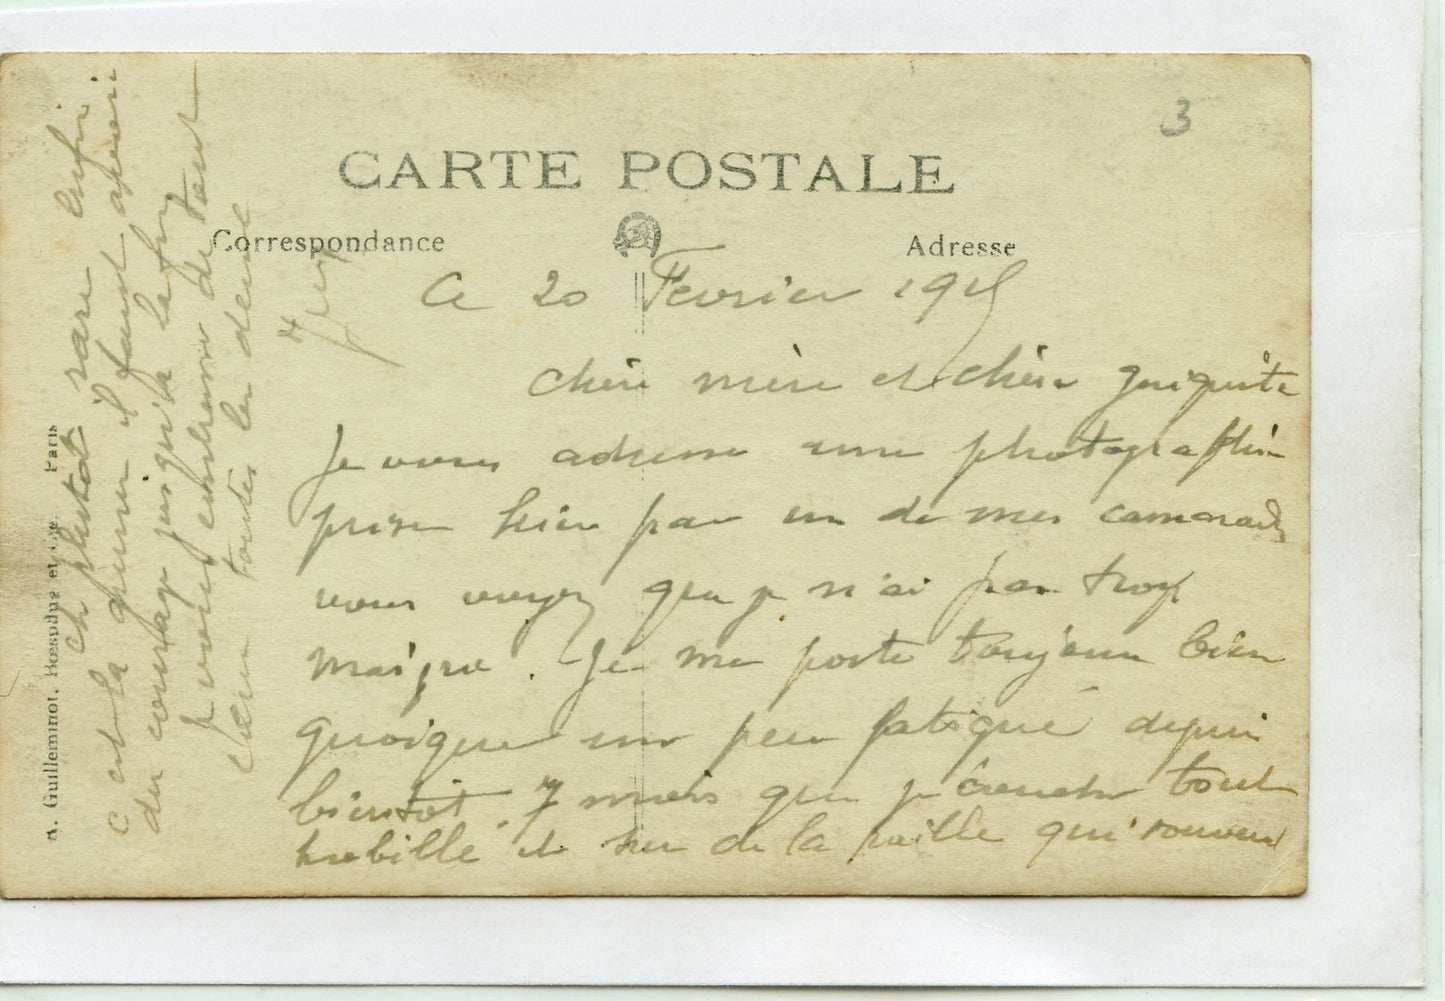 3
CARTE POSTALE
Correspondance
Adresse
Ce 20 Fevrier 1915
chère mère et chère
Je vous adresse une photographie
prise hier par un de mes camarads
vous voyez que je n'ai pas trop
maigre. Je me porte toujours bien
quoique un peu fatiqué depuis
bientôt 7 mois que je couche tout
habillé et sur de la paille qui souvent
est plutot rare enfin
c est la guerre il faut avoir
du courage jusqu'à la fin
je vous embrasse de tout
cœur toutes les deux
A. Guilleminot, Bœspflug et Cie. Paris